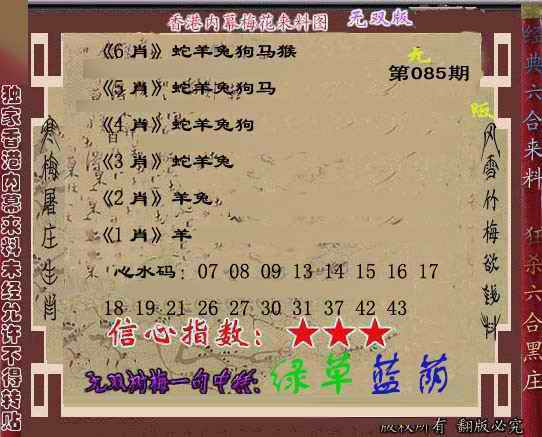 香港内幕梅花来料图 无双版
《6 肖》蛇羊兔狗马猴
第085期
《5 肖》蛇羊兔狗马
《4 肖》蛇羊兔狗
《3 肖》蛇羊兔
《2 肖》羊兔
《1 肖》羊
心水码: 07 08 09 13 14 15 16 17
18 19 21 26 27 30 31 37 42 43
信心指数: ★★★
无双踏梅一句中特: 绿草蓝荫
版权所有 翻版必究
独家香港内幕来料未经允许不得转贴
寒梅屠庄生肖
风雪竹梅欲钱料
经典六合来料 狂杀六合黑庄